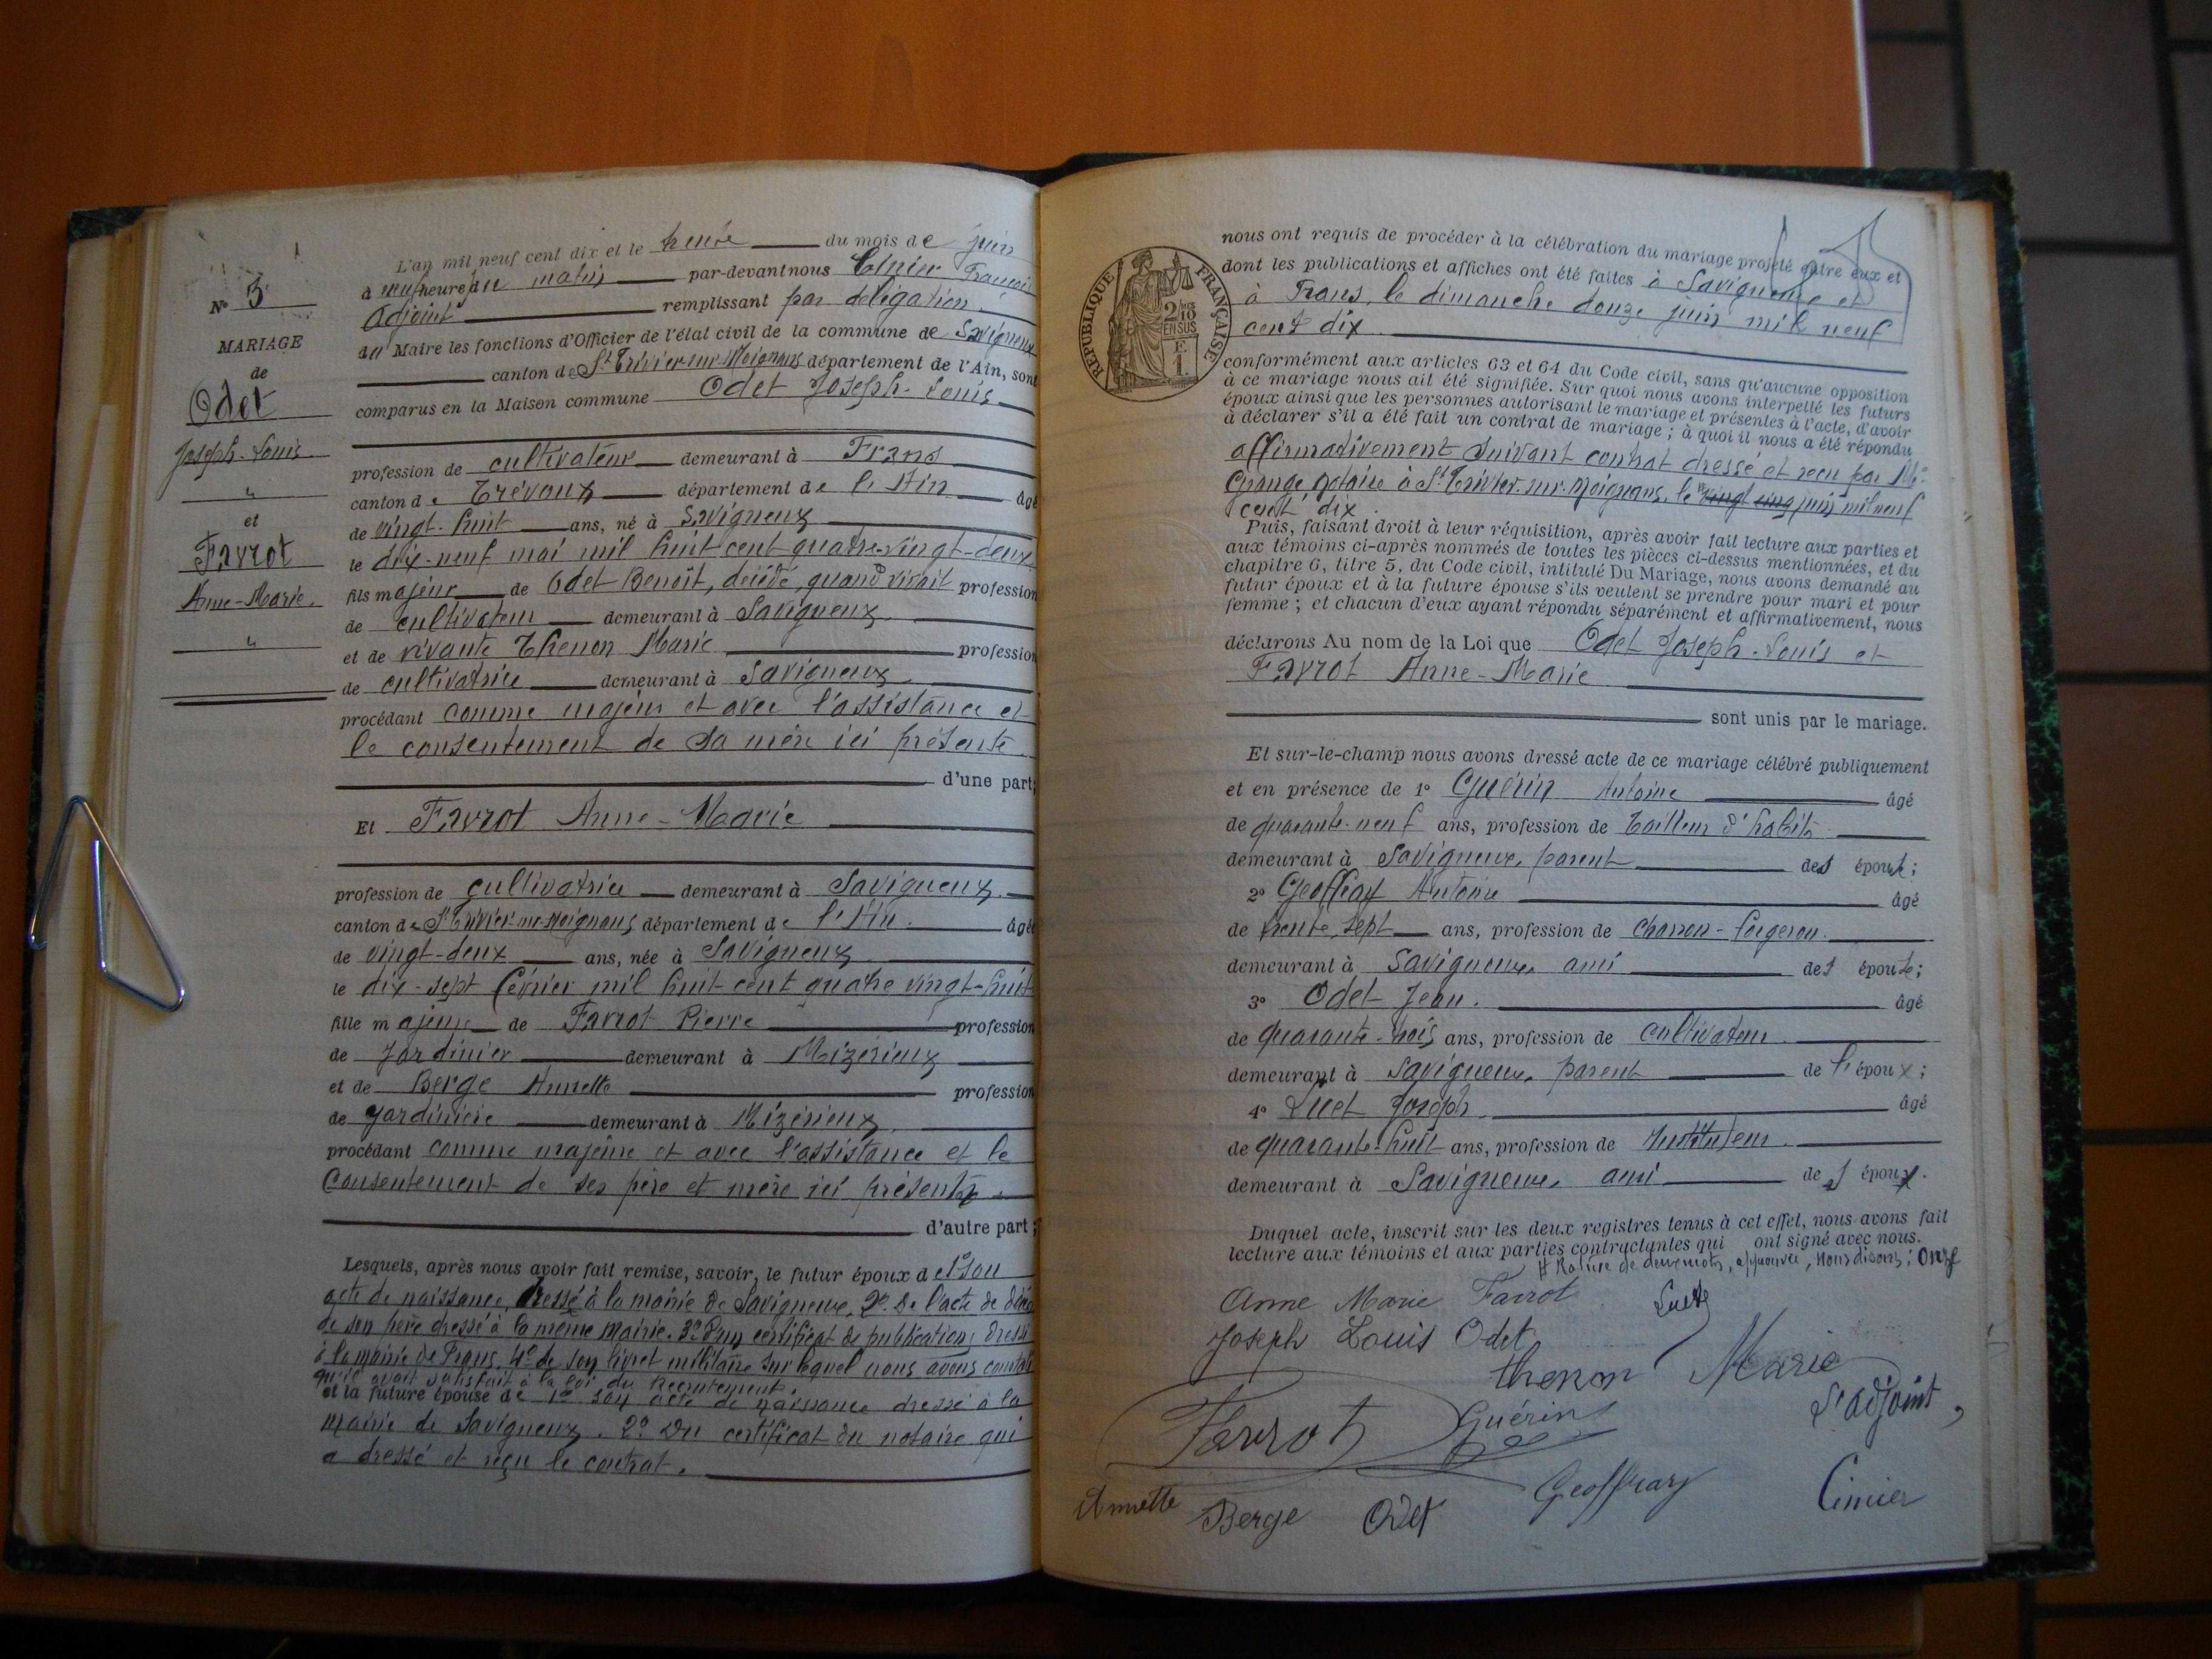 N° 3
MARIAGE
de
Odet
Joseph-Louis
"
et
Favrot
Anne-Marie.
"
L'an mil neuf cent dix et le trente du mois de juin
à neuf heures du matin par-devant nous François
Adjoint remplissant par délégation
du Maire les fonctions d'Officier de l'état civil de la commune de Savigneux
canton de St Trivier-sur-Moignans département de l'Ain, sont
comparus en la Maison commune Odet Joseph-Louis
profession de cultivateur demeurant à Frans
canton de Trévoux département de l'Ain âgé
de vingt-huit ans, né à Savigneux
le dix-neuf mai mil huit cent quatre-vingt-deux
fils majeur de Odet Benoît, décédé, quand vivait profession
de cultivateur demeurant à Savigneux
et de vivante Thenon Marie profession
de cultivatrice demeurant à Savigneux
procédant comme majeur et avec l'assistance et
le consentement de sa mère ici présente
d'une part;
Et Favrot Anne-Marie
profession de cultivatrice demeurant à Savigneux.
canton de St Trivier-sur-Moignans département de l'Ain. âgée
de vingt-deux ans, née à Savigneux
le dix-sept février mil huit cent quatre vingt-huit
fille majeure de Favrot Pierre profession
de Jardinier demeurant à Mizérieux
et de Berge Annette profession
de Jardinière demeurant à Mizérieux.
procédant comme majeure et avec l'assistance et le
consentement de ses père et mère ici présents.
d'autre part;
Lesquels, après nous avoir fait remise, savoir, le futur époux de 1° son
acte de naissance, dressé à la mairie de Savigneux, 2° de l'acte de décès
de son père dressé à la même mairie. 3° d'un certificat de publications dressé
à la mairie de Frans, 4° de son livret militaire sur lequel nous avons constaté
qu'il avait satisfait à la loi du Recrutement.
et la future épouse de 1° son acte de naissance dressé à la
mairie de Savigneux. 2° Du certificat du notaire qui
a dressé et reçu le contrat.
RÉPUBLIQUE FRANÇAISE
2/10
EN SUS
F.
1.
nous ont requis de procéder à la célébration du mariage projeté entre eux et
dont les publications et affiches ont été faites à Savigneux et
à Frans, le dimanche douze juin mil neuf
cent dix
conformément aux articles 63 et 64 du Code civil, sans qu'aucune opposition
à ce mariage nous ait été signifiée. Sur quoi nous avons interpellé les futurs
époux ainsi que les personnes autorisant le mariage et présentes à l'acte, d'avoir
à déclarer s'il a été fait un contrat de mariage; à quoi il nous a été répondu
affirmativement suivant contrat dressé et reçu par Me
Grange notaire à St Trivier-sur-Moignans, le vingt cinq juin mil neuf
cent dix.
Puis, faisant droit à leur réquisition, après avoir fait lecture aux parties et
aux témoins ci-après nommés de toutes les pièces ci-dessus mentionnées, et du
chapitre 6, titre 5, du Code civil, intitulé Du Mariage, nous avons demandé au
futur époux et à la future épouse s'ils veulent se prendre pour mari et pour
femme; et chacun d'eux ayant répondu séparément et affirmativement, nous
déclarons Au nom de la Loi que Odet Joseph-Louis et
Favrot Anne-Marie
sont unis par le mariage.
Et sur-le-champ nous avons dressé acte de ce mariage célébré publiquement
et en présence de 1° Guérin Antoine âgé
de quarante-neuf ans, profession de Tailleur d'habits
demeurant à Savigneux, parent des époux;
2° Geoffray Antoine âgé
de trente-sept ans, profession de charron-forgeron.
demeurant à Savigneux, ami des époux;
3° Odet Jean. âgé
de quarante-trois ans, profession de cultivateur
demeurant à Savigneux, parent de l'époux;
4° Luet Joseph. âgé
de quarante-huit ans, profession de Instituteur.
demeurant à Savigneux, ami des époux.
Duquel acte, inscrit sur les deux registres tenus à cet effet, nous avons fait
lecture aux témoins et aux parties contractantes qui ont signé avec nous.
# Rature de deux mots, approuvée, nous disons; onze
Anne Marie Favrot Luet
Joseph Louis Odet
thenon Marie
Favrot Guérin L'adjoint,
Annette Berge Odet Geoffray Cinier